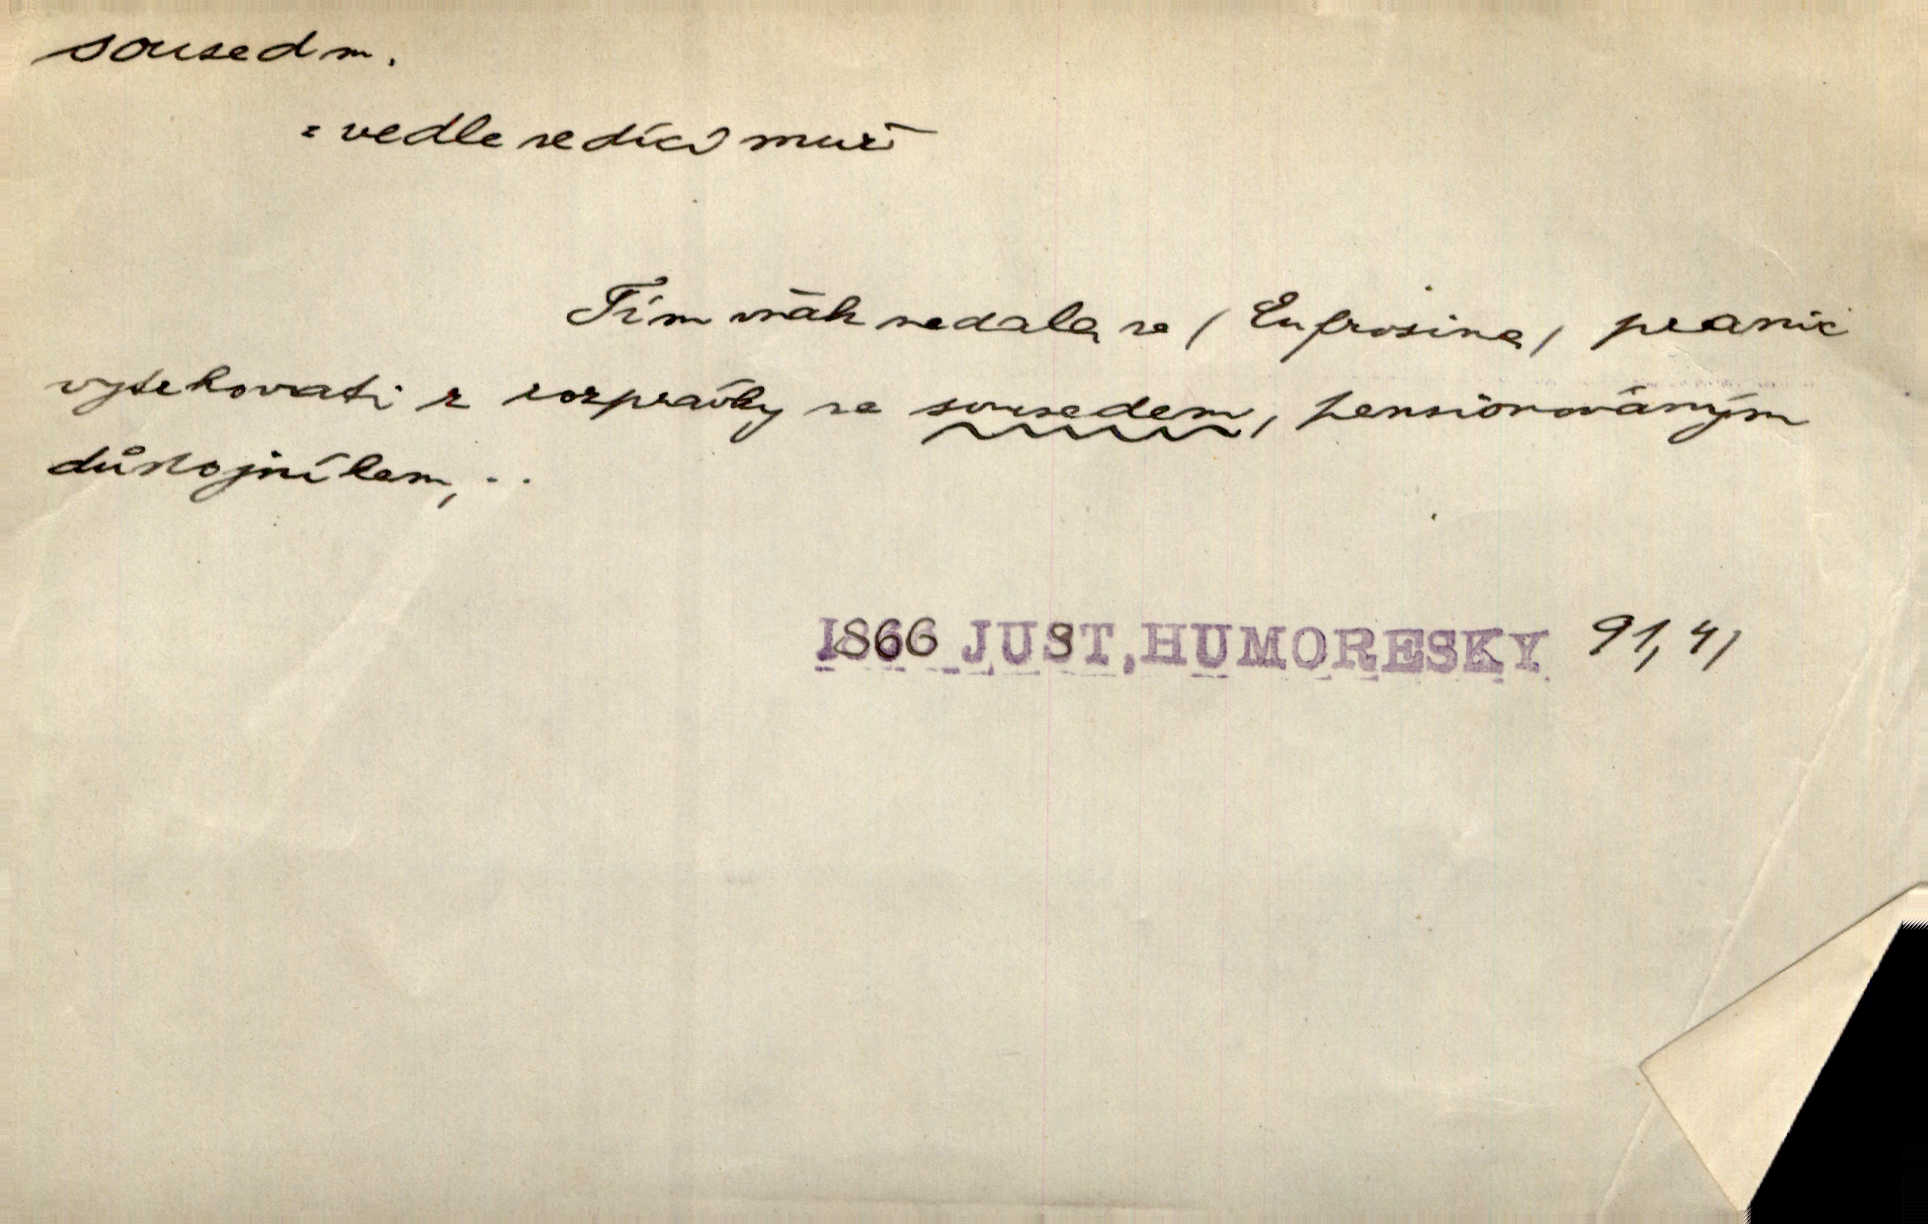 soused m.
= vedle sedící muž
Tím však nedala se / Eufrosina / pranic
vytrhovati z rozprávky se sousedem, pensionovaným
důstojníkem, ..
1866 JUST, HUMORESKY 91,41